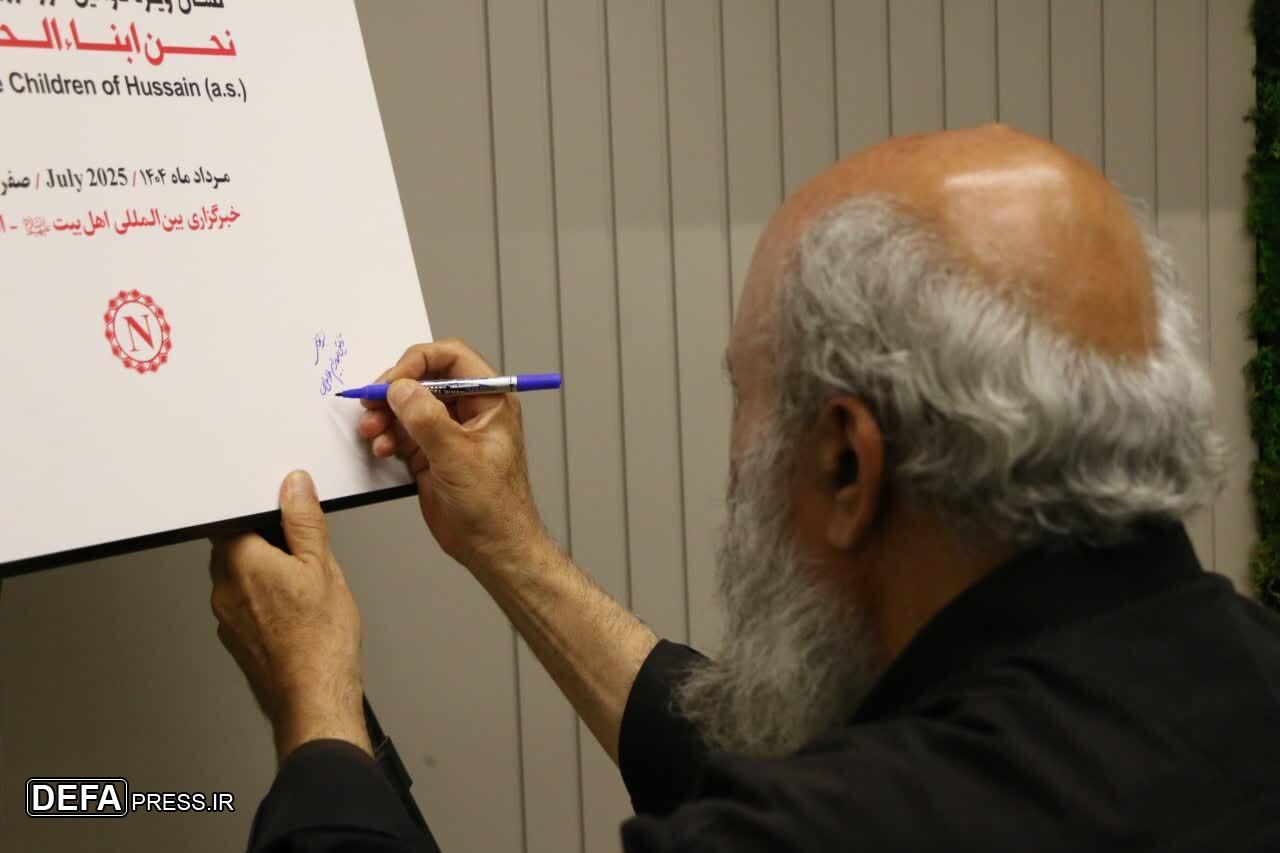 نحن ابناء الح
Children of Hussain (a.s.)
مرداد ماه ۱۴۰۴ / July 2025 / صفر
خبرگزاری بین‌المللی اهل‌بیت
N
DEFAPRESS.IR